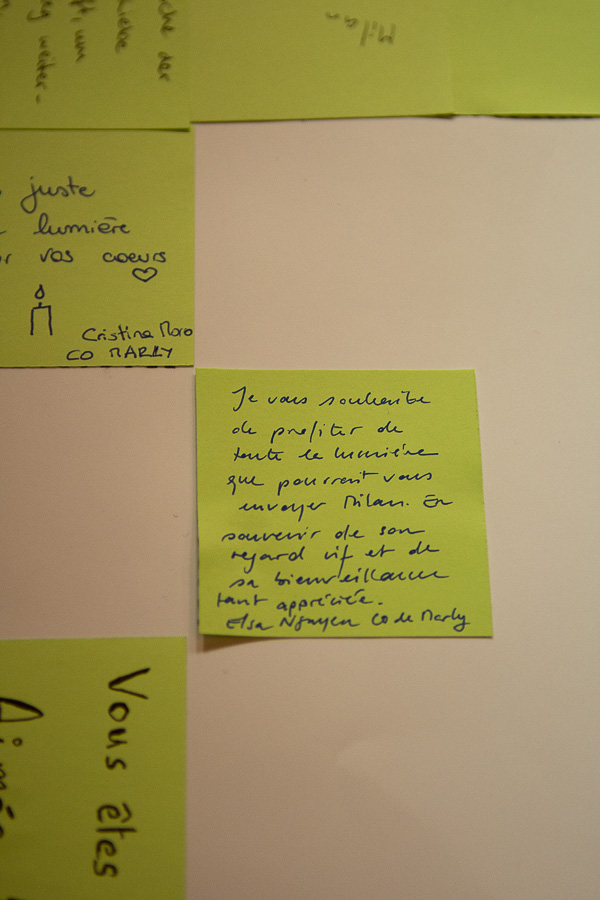 che der
Liebe
ft, um
ng weiter-
Milan
juste
lumière
vos coeurs
Cristina Moro
CO MARLY
Je vous souhaite
de profiter de
toute la lumière
que pourrait vous
envoyer Milan. En
souvenir de son
regard vif et de
sa bienveillance
tant appréciée.
Elsa Nguyen CO de Marly
Vous êtes
Aimés